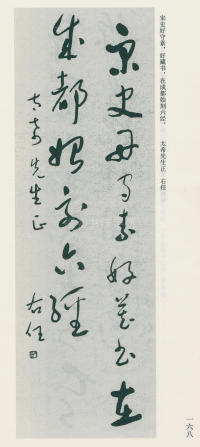 宋史好守素，好藏书，在成都始刻六经。 太希先生正 右任
宋史毋守素好藏书在
成都始刻六經
太希先生正
右任
一六八